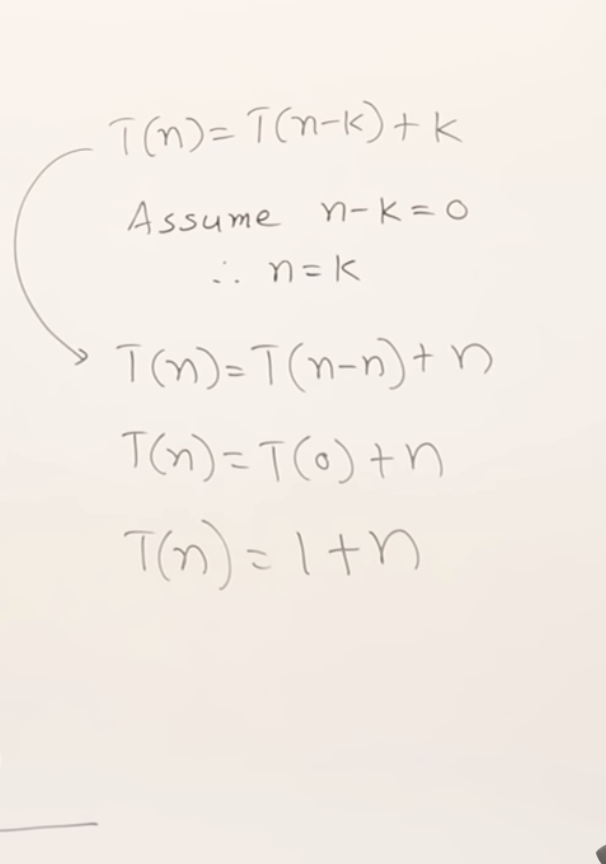 T(n)= T(n-k)+k
Assume n-k=0
∴ n=k
T(n)=T(n-n)+n
T(n)=T(0)+n
T(n)=1+n